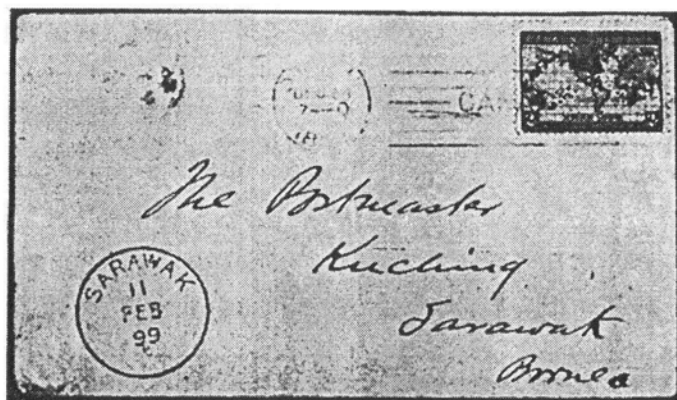 7-0
CA
The Postmaster
Kuching
Sarawak
Borneo
SARAWAK
11
FEB
99